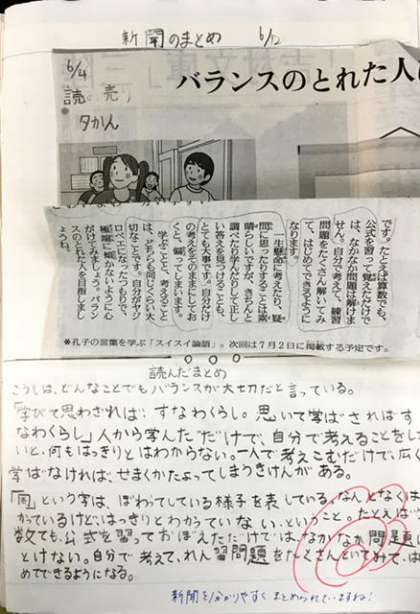 新聞のまとめ 6/12
6/4
読売
夕かん
バランスのとれた人
です。たとえば算数でも、
公式を習って覚えただけで
は、なかなか問題は解けま
せん。自分で考えて、練習
問題をたくさん解いてみ
て、はじめてできるように
なります。
一生懸命に考えたり、疑
問に思ったりすることは素
晴らしいですが、きちんと
調べたり学んだりして正し
い答えを見つけることも、
とても大事です。自分だけ
の考えをそのままにしてお
くと、偏ってしまいます。
学ぶことと、考えること
は、どちらも同じくらい大
切なことです。自分がヤジ
ロベエになったつもりで、
極端に傾かないように心
がけてみましょう。バラン
スのとれた人を目指しまし
ょうね。
※孔子の言葉を学ぶ「スイスイ論語」。次回は7月2日に掲載する予定です。
読んだまとめ
こうしは、どんなことでもバランスが大切だと言っている。
「学びて思わざれば、すなわくらし。思いて学ばざればす
なわくらし」人から学んだだけで、自分で考えることをし
いと、何もはっきりとはわからない。一人で考えこむだけで、広く
学ばなければ、せまくかたよってしまうきけんがある。
「罔」という字は、ぼわってしている様子を表している。なんとなくは
かっているけど、はっきりとわかっていない、ということ。たとえば
数でも、公式を習っておぼえただけでは、なかなか問題は
とけない。自分で考えて、れん習問題をたくさんといてみて、は
めてできるようになる。
新聞を分かりやすくまとめられていますね!